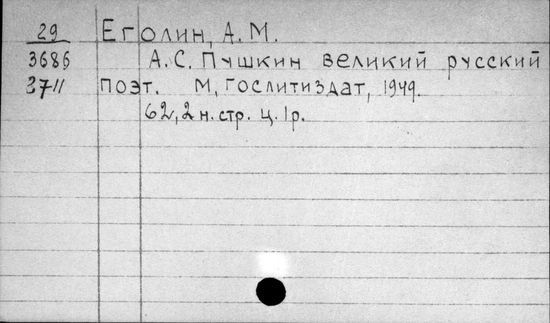 29 Еголин, А. М.
3686 А. С. Пушкин великий русский
3711 поэт. М, Гослитиздат, 1949.
62, 2 н. стр. ц. 1 р.